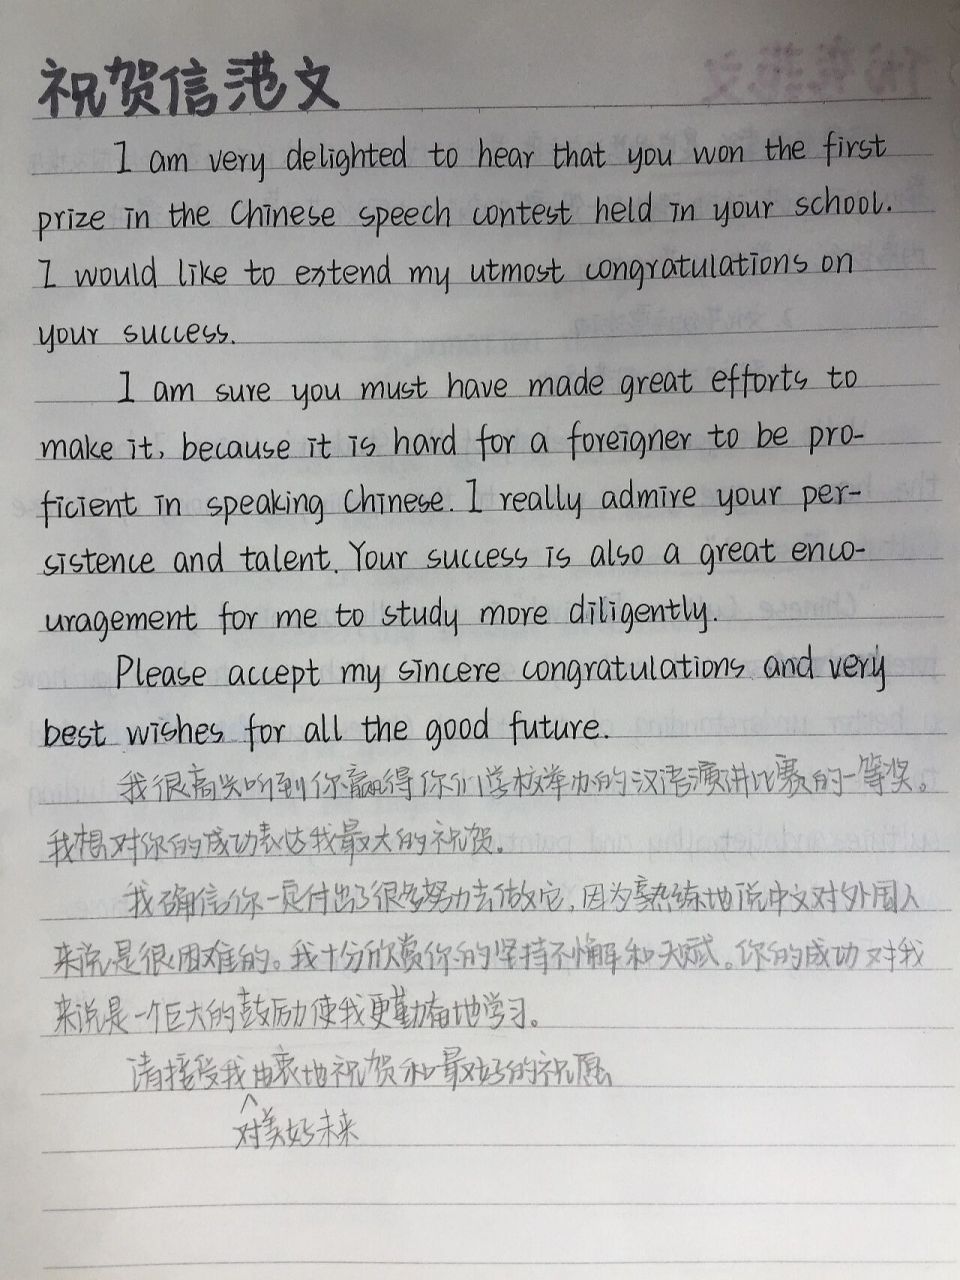 祝贺信范文
I am very delighted to hear that you won the first
prize in the Chinese speech contest held in your school.
I would like to extend my utmost congratulations on
your success.
I am sure you must have made great efforts to
make it, because it is hard for a foreigner to be pro-
ficient in speaking Chinese. I really admire your per-
sistence and talent. Your success is also a great enco-
uragement for me to study more diligently.
Please accept my sincere congratulations and very
best wishes for all the good future.
我很高兴听到你赢得你们学校举办的汉语演讲比赛的一等奖。
我想对你的成功表达我最大的祝贺。
我确信你一定付出了很多努力去做它,因为熟练地说中文对外国人
来说是很困难的。我十分欣赏你的坚持不懈和天赋。你的成功对我
来说是一个巨大的鼓励使我更勤奋地学习。
请接受我由衷地祝贺和最好的祝愿
对美好未来